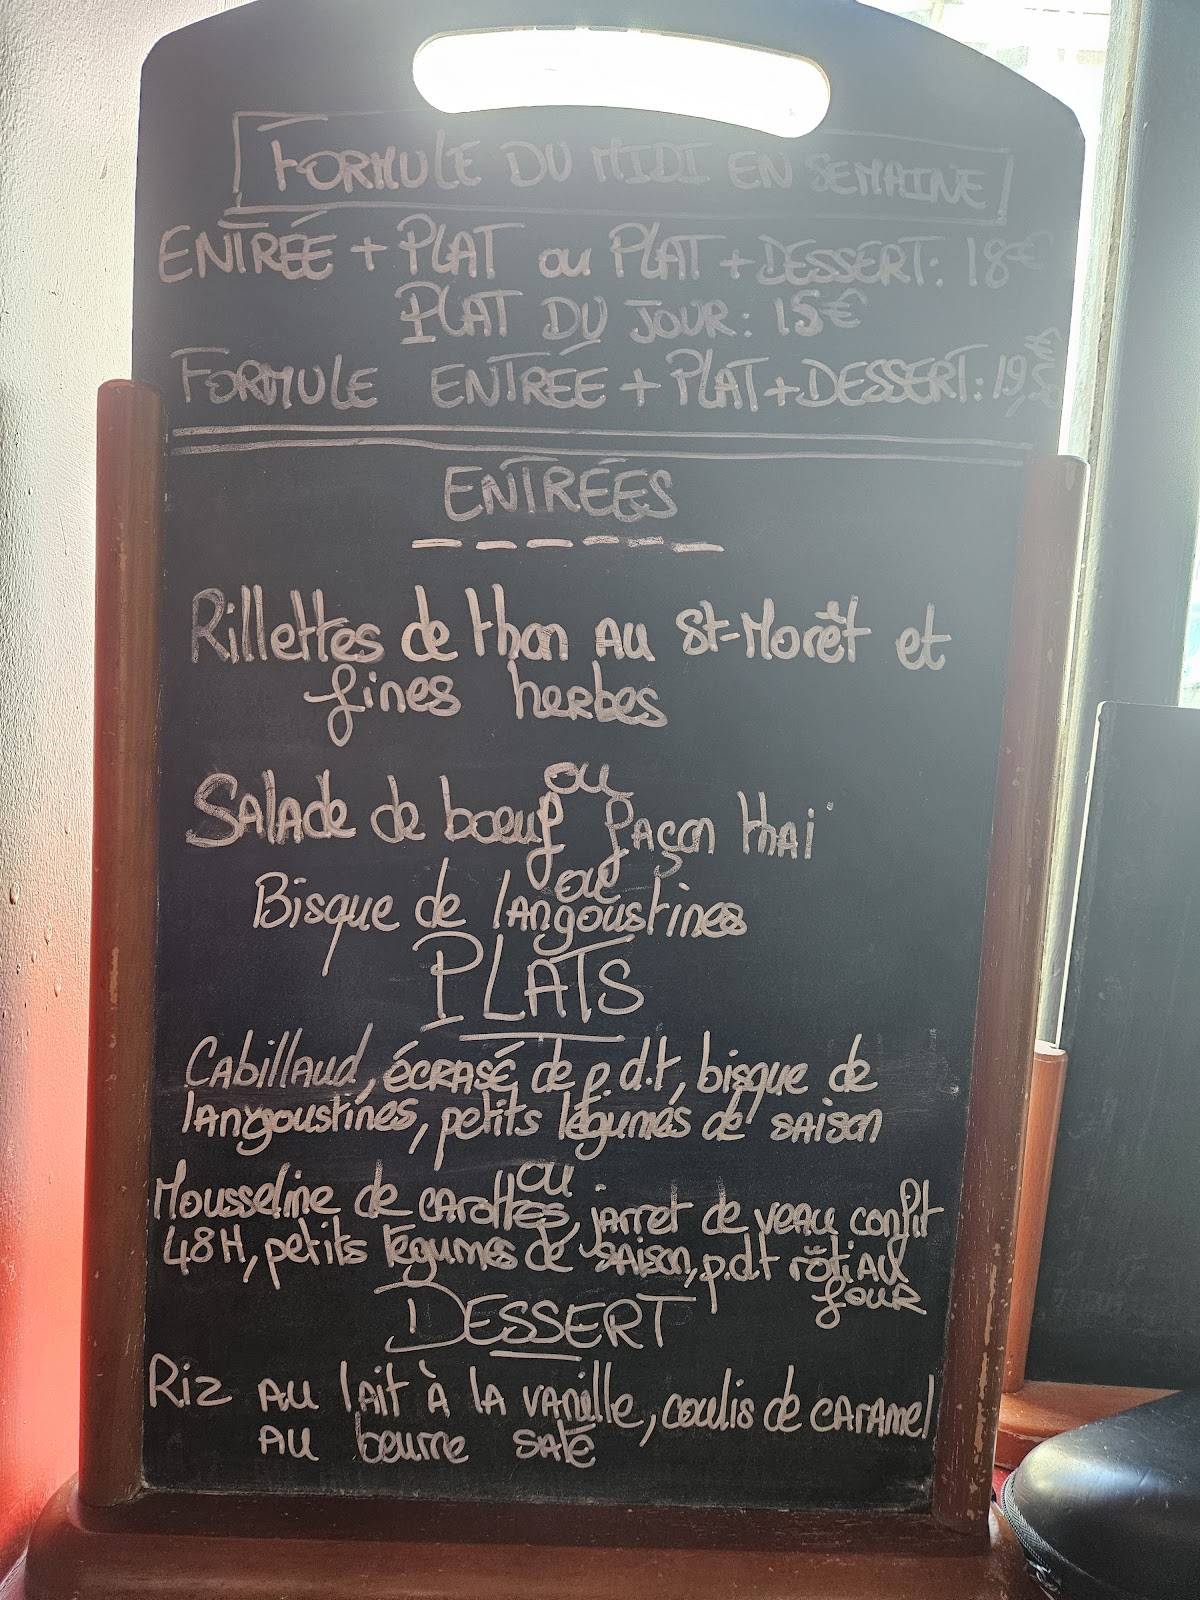 FORMULE DU MIDI EN SEMAINE
ENTRÉE + PLAT ou PLAT + DESSERT: 18€
PLAT DU JOUR: 15€
FORMULE ENTRÉE + PLAT + DESSERT: 19,5€
ENTRÉES
Rillettes de thon au St-Morêt et
fines herbes
ou
Salade de boeuf façon thai
ou
Bisque de langoustines
PLATS
Cabillaud, écrasé de p.d.t, bisque de
langoustines, petits légumes de saison
ou
Mousseline de carottes, jarret de veau confit
48H, petits légumes de saison, p.d.t rôti au
four
DESSERT
Riz au lait à la vanille, coulis de caramel
au beurre salé